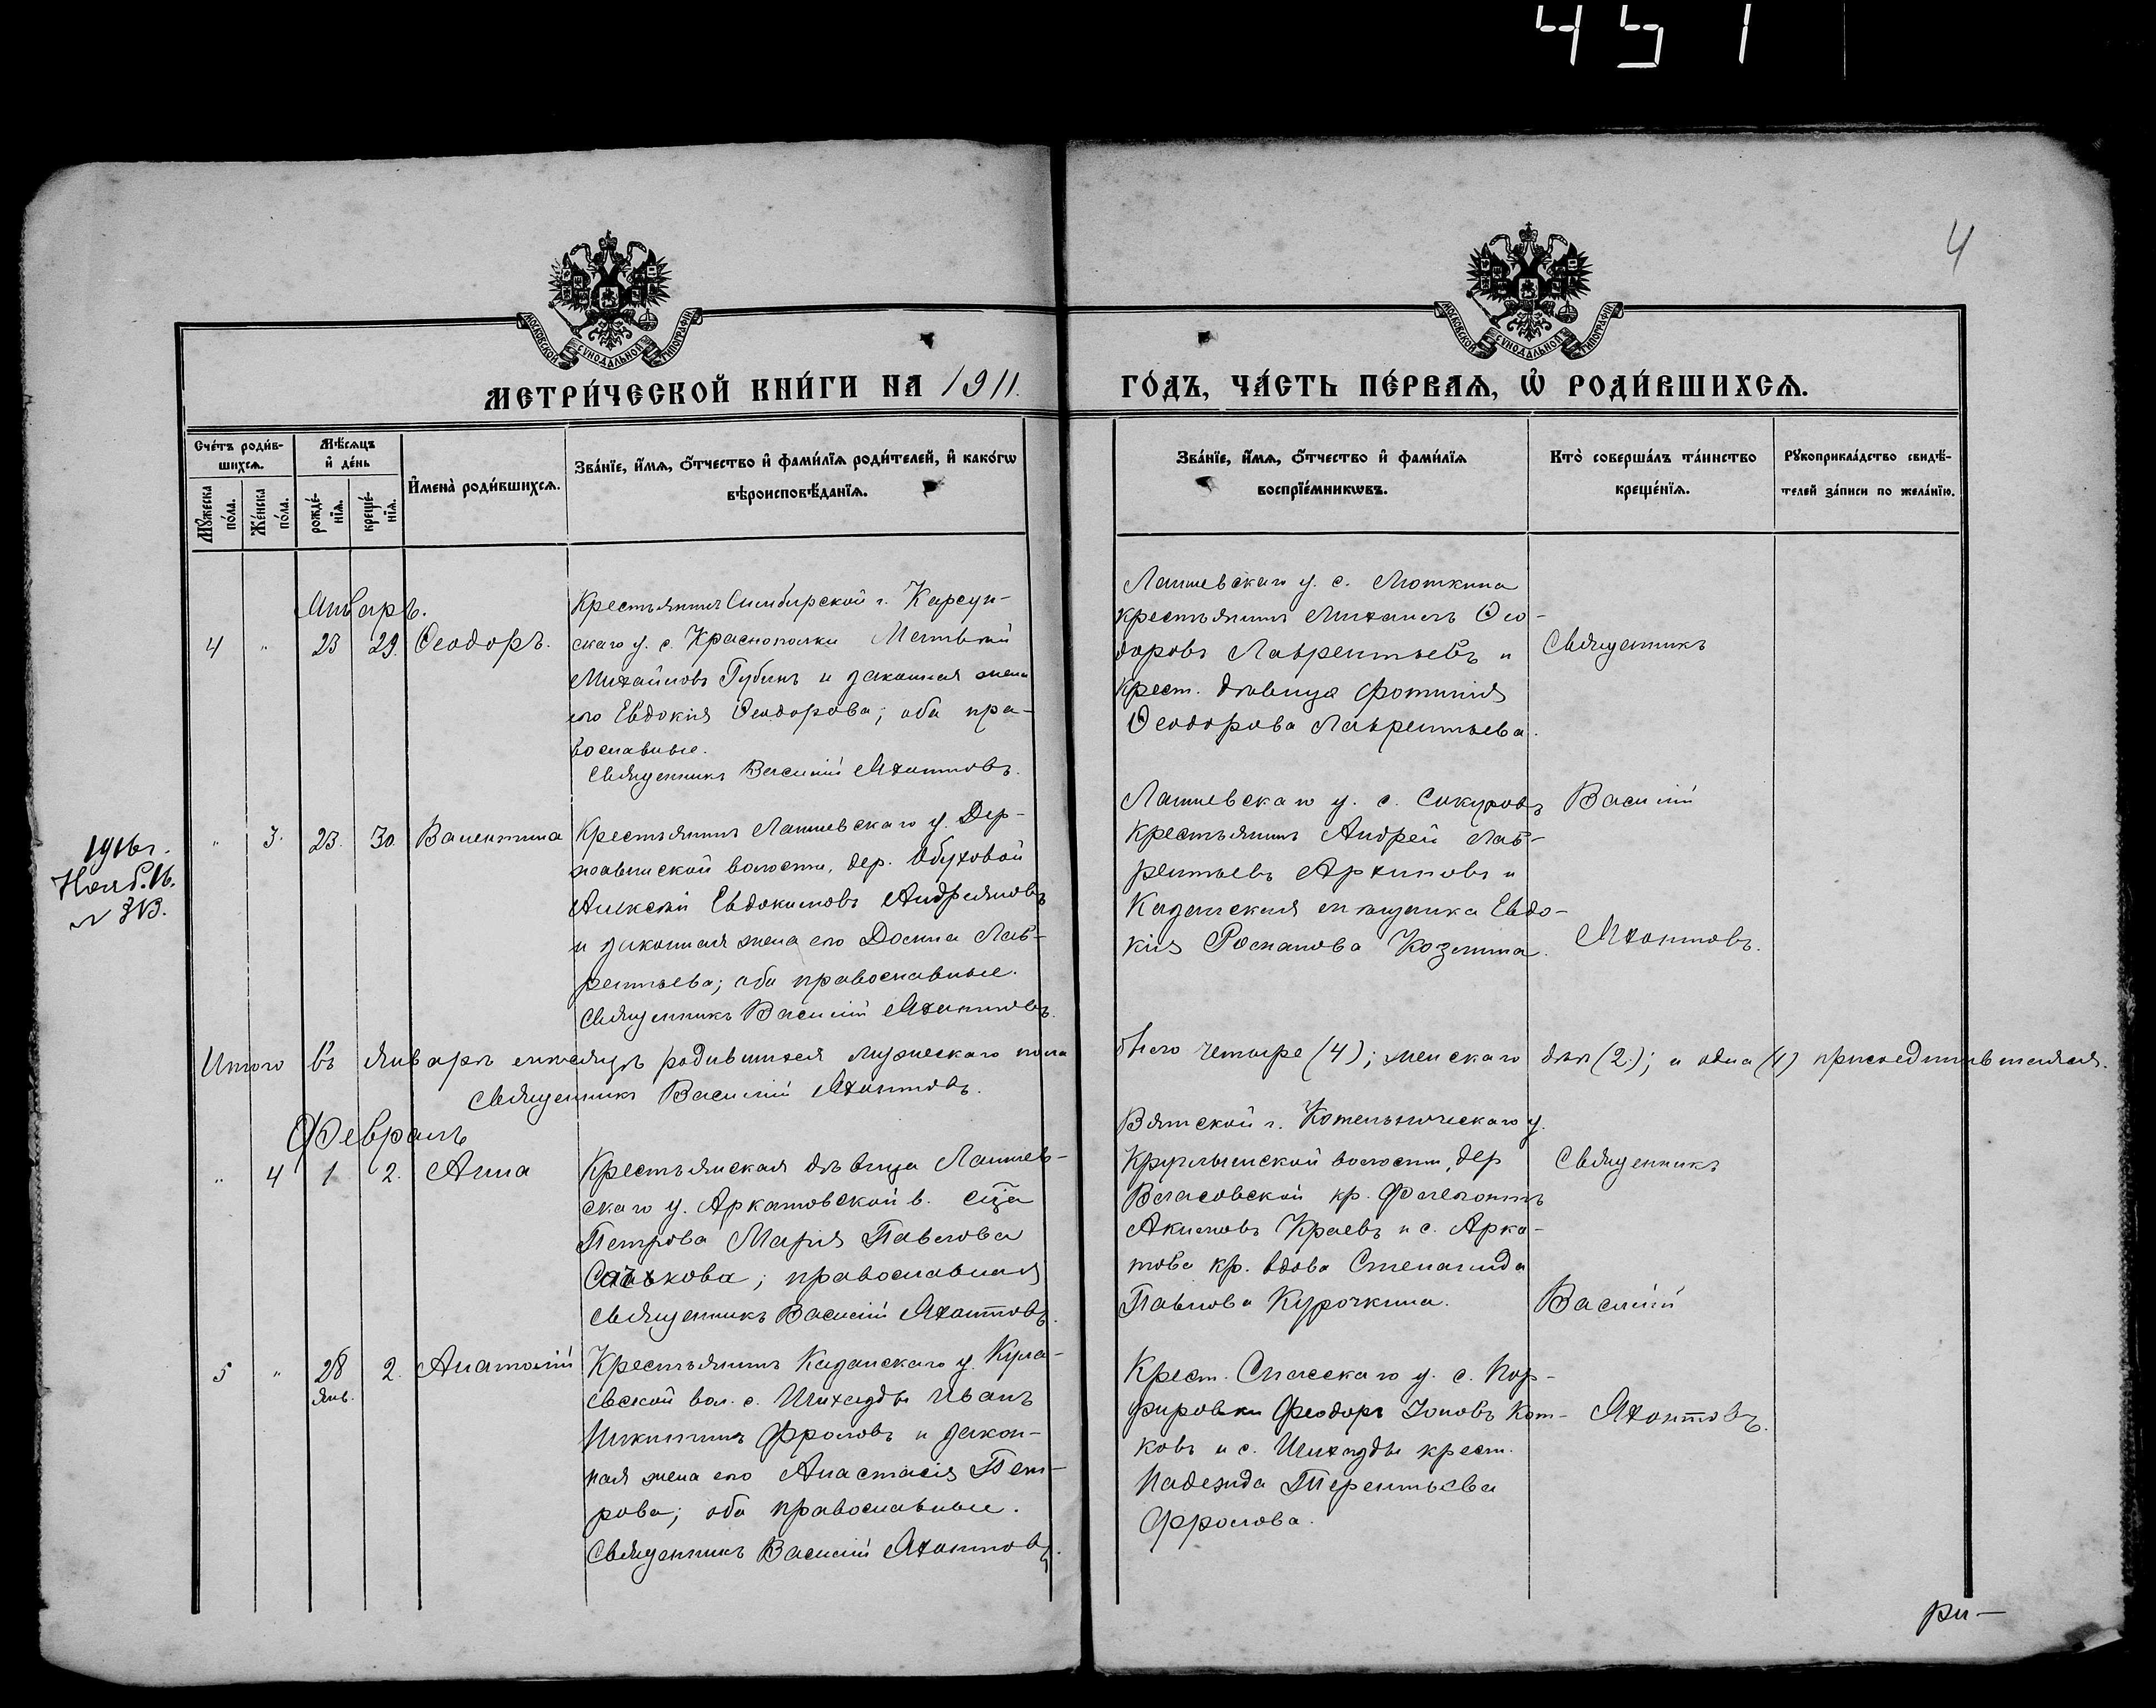 451
4
МОСКОВСКОЙ СѴНОДАЛЬНОЙ ТИПОГРАФІИ
МОСКОВСКОЙ СѴНОДАЛЬНОЙ ТИПОГРАФІИ
МЕТРИ́ЧЕСКОЙ КНИ́ГИ НА 1911.
ГО́ДЪ, ЧА́СТЬ ПЕ́РВАѦ, Ѡ҆ РОДИ́ВШИХСѦ.
Сче́тъ роди́в-
шихсѧ.
Мꙋ́жеска по́ла.
Же́нска по́ла.
Мѣ́сѧцъ
и҆ де́нь
рожде́-
нїѧ.
креще́-
нїѧ.
И҆мена̀ роди́вшихсѧ.
Зва́нїе, и҆́мѧ, ѻ҆́тчество и҆ фами́лїѧ роди́телей, и҆ како́гѡ
вѣроисповѣ́данїѧ.
Зва́нїе, и҆́мѧ, ѻ҆́тчество и҆ фами́лїѧ
воспрїе́мникѡвъ.
Кто̀ соверша́лъ та́инство
креще́нїѧ.
Рꙋкоприкла́дство свидѣ́-
телей за́писи по жела́нїю.
Январь.
4 " 23 29. Ѳеодоръ.
Крестьянинъ Симбирской г. Карсун-
скаго у. с. Краснополки Матвѣй
Михайловъ Губинъ и законная жена
его Евдокія Ѳеодорова; оба пра-
вославные.
Священникъ Василій Яхонтовъ.
Лаишевскаго у. с.
крестьянинъ Михаилъ Ѳео-
доровъ Лаврентьевъ и
крест. дѣвица Фотинія
Ѳеодорова Лаврентьева.
Священникъ
1916 г.
Нояб. 16.
№ 313.
" 3. 23. 30 Валентина
Крестьянинъ Лаишевскаго у. Дер-
жавинской волости, дер. Обуховой
Алексѣй Евдокимовъ Андріяновъ
и законная жена его Домна Лав-
рентьева; оба православные.
Священникъ Василій Яхонтовъ.
Лаишевскаго у. с. Сокуровъ
крестьянинъ Андрей Лав-
рентьевъ Архиповъ и
Казанская мѣщанка Евдо-
кія Романова Козмина.
Василій
Яхонтовъ.
Итого въ январѣ мѣсяцѣ родившихся мужескаго пола
было четыре (4); женскаго двѣ (2.); и одна (1) присоединившаяся.
Священникъ Василій Яхонтовъ.
Февраль
" 4 1 2. Анна
Крестьянская дѣвица Лаишев-
скаго у. Аркатовской в. сца
Петрова Марія Павлова
православная
Священникъ Василій Яхонтовъ.
Вятской г. Котельническаго у.
волости, дер
Власовской кр. Филимонъ
Акимовъ Краевъ и с. Арка-
това кр. вдова Степанида
Павлова Курочкина.
Священникъ
Василій
5 " 28 2. Анатолій
янв.
Крестьянинъ Казанскаго у. Кула-
евской вол. с. Шихазды Иванъ
Никитинъ Фроловъ и закон-
ная жена его Анастасія Пет-
рова; оба православные.
Священникъ Василій Яхонтовъ.
Крест. Спасскаго у. с. Пор-
фировки Ѳеодоръ Іоновъ Кот-
ковъ и с. Шихазды крест.
Надежда Терентьева
Фролова.
Яхонтовъ.
ри-